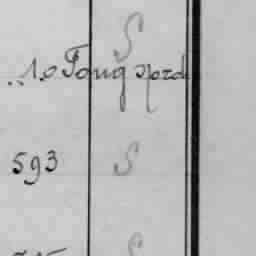 S
10 Tong Nord
593 S
S